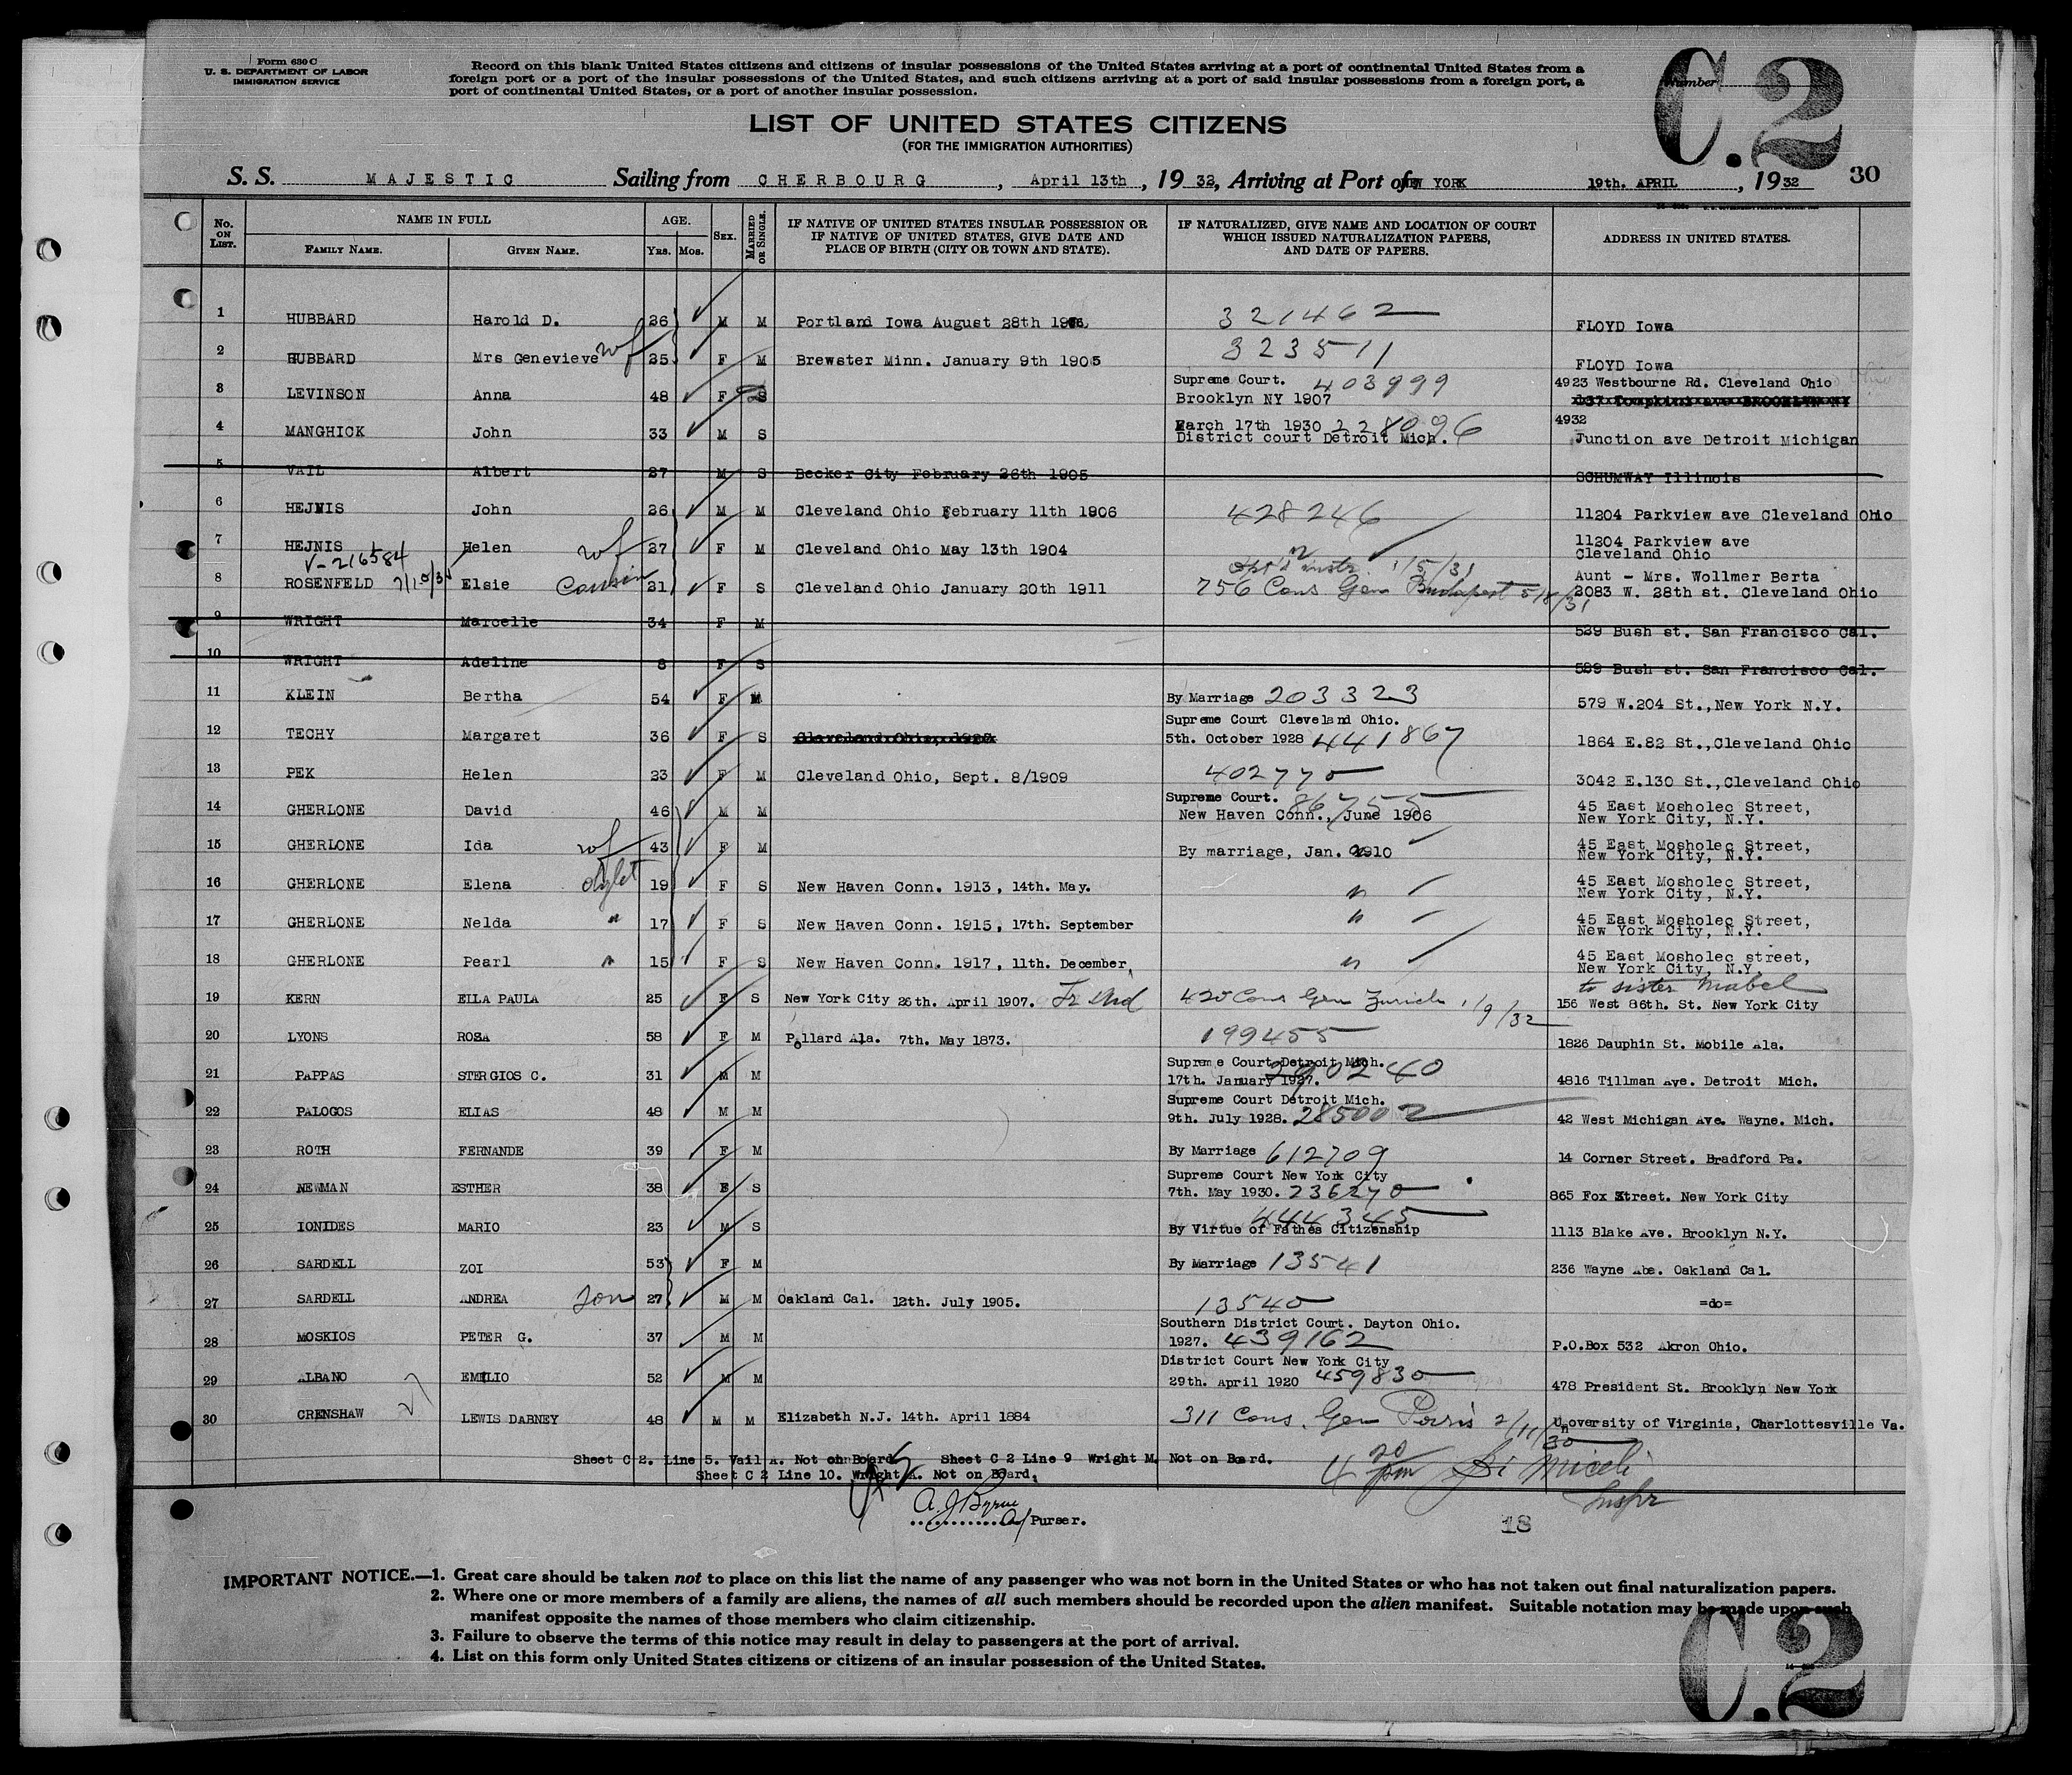 Form 630 C
U. S. DEPARTMENT OF LABOR
IMMIGRATION SERVICE
Record on this blank United States citizens and citizens of insular possessions of the United States arriving at a port of continental United States from a
foreign port or a port of the insular possessions of the United States, and such citizens arriving at a port of said insular possessions from a foreign port, a
port of continental United States, or a port of another insular possession.
Number
C.2
LIST OF UNITED STATES CITIZENS
(FOR THE IMMIGRATION AUTHORITIES)
S. S. MAJESTIC Sailing from CHERBOURG, April 13th, 1932, Arriving at Port of NEW YORK 19th. APRIL, 1932 30
No. ON LIST. NAME IN FULL FAMILY NAME. GIVEN NAME. AGE. Yrs. Mos. SEX. MARRIED OR SINGLE. IF NATIVE OF UNITED STATES INSULAR POSSESSION OR IF NATIVE OF UNITED STATES, GIVE DATE AND PLACE OF BIRTH (CITY OR TOWN AND STATE). IF NATURALIZED, GIVE NAME AND LOCATION OF COURT WHICH ISSUED NATURALIZATION PAPERS, AND DATE OF PAPERS. ADDRESS IN UNITED STATES.
1 HUBBARD Harold D. 26 M M Portland Iowa August 28th 321462 FLOYD Iowa
2 HUBBARD Mrs Genevieve wf 25 F M Brewster Minn. January 9th 1905 323511 FLOYD Iowa
3 LEVINSON Anna 48 F S Supreme Court. 403999 Brooklyn NY 1907 4923 Westbourne Rd. Cleveland Ohio
4 MANGHICK John 33 M S March 17th 1930 228096 District court Detroit Mich. 4932 Junction ave Detroit Michigan
5 VAIL Albert 27 M S Becker City February 26th 1905 SCHUMWAY Illinois
6 HEJNIS John 26 M M Cleveland Ohio February 11th 1906 428246 11204 Parkview ave Cleveland Ohio
7 HEJNIS Helen wf 27 F M Cleveland Ohio May 13th 1904 " 11204 Parkview ave Cleveland Ohio
V-216584
8 ROSENFELD Elsie Cousin 21 F S Cleveland Ohio January 20th 1911 756 Cons Gen Budapest 5/8/31 Aunt - Mrs. Wollmer Berta 2083 W. 28th st. Cleveland Ohio
9 WRIGHT Marcelle 34 F M 539 Bush st. San Francisco Cal.
10 WRIGHT Adeline 8 F S 539 Bush st. San Francisco Cal.
11 KLEIN Bertha 54 F M By Marriage 203323 579 W.204 St.,New York N.Y.
12 TECHY Margaret 36 F S Supreme Court Cleveland Ohio. 5th. October 1928 441867 1864 E.82 St.,Cleveland Ohio
13 PEK Helen 23 F M Cleveland Ohio, Sept. 8/1909 402770 3042 E.130 St.,Cleveland Ohio
14 GHERLONE David 46 M M Supreme Court. 86755 New Haven Conn., June 1906 45 East Mosholec Street, New York City, N.Y.
15 GHERLONE Ida wf 43 F M By marriage, Jan. 1910 45 East Mosholec Street, New York City, N.Y.
16 GHERLONE Elena 19 F S New Haven Conn. 1913, 14th. May. " 45 East Mosholec Street, New York City, N.Y.
17 GHERLONE Nelda " 17 F S New Haven Conn. 1915, 17th. September " 45 East Mosholec Street, New York City, N.Y.
18 GHERLONE Pearl " 15 F S New Haven Conn. 1917, 11th. December, " 45 East Mosholec street, New York City, N.Y.
19 KERN ELLA PAULA 25 F S New York City 26th. April 1907. 420 Cons Gen Zurich 1/9/32 to sister Mabel 156 West 86th. St. New York City
20 LYONS ROSA 58 F M Pollard Ala. 7th. May 1873. 199455 1826 Dauphin St. Mobile Ala.
21 PAPPAS STERGIOS C. 31 M M Supreme Court Detroit Mich. 17th. January 1927. 290240 4816 Tillman Ave. Detroit Mich.
22 PALOGOS ELIAS 48 M M Supreme Court Detroit Mich. 9th. July 1928. 285002 42 West Michigan Ave. Wayne. Mich.
23 ROTH FERNANDE 39 F M By Marriage 612709 14 Corner Street. Bradford Pa.
24 NEWMAN ESTHER 38 F S Supreme Court New York City 7th. May 1930. 236270 865 Fox Street. New York City
25 IONIDES MARIO 23 M S 444345 By Virtue of Fathes Citizenship 1113 Blake Ave. Brooklyn N.Y.
26 SARDELL ZOI 53 F M By Marriage 13541 236 Wayne Abe. Oakland Cal.
27 SARDELL ANDREA son 27 M M Oakland Cal. 12th. July 1905. 13540 =do=
28 MOSKIOS PETER G. 37 M M Southern District Court. Dayton Ohio. 1927. 439162 P.O.Box 532 Akron Ohio.
29 ALBANO EMILIO 52 M M District Court New York City 29th. April 1920 459830 478 President St. Brooklyn New York
30 CRENSHAW LEWIS DABNEY 48 M M Elizabeth N.J. 14th. April 1884 311 Cons. Gen Paris 2/11/30 Unoversity of Virginia, Charlottesville Va.
Sheet C 2. Line 5. Vail A. Not on Board. Sheet C 2 Line 9 Wright M. Not on Board.
Sheet C 2 Line 10. Wright A. Not on Board.
A. J. Byrne
Purser.
Inspr
18
IMPORTANT NOTICE.—1. Great care should be taken not to place on this list the name of any passenger who was not born in the United States or who has not taken out final naturalization papers.
2. Where one or more members of a family are aliens, the names of all such members should be recorded upon the alien manifest. Suitable notation may be made upon such
manifest opposite the names of those members who claim citizenship.
3. Failure to observe the terms of this notice may result in delay to passengers at the port of arrival.
4. List on this form only United States citizens or citizens of an insular possession of the United States.
C.2